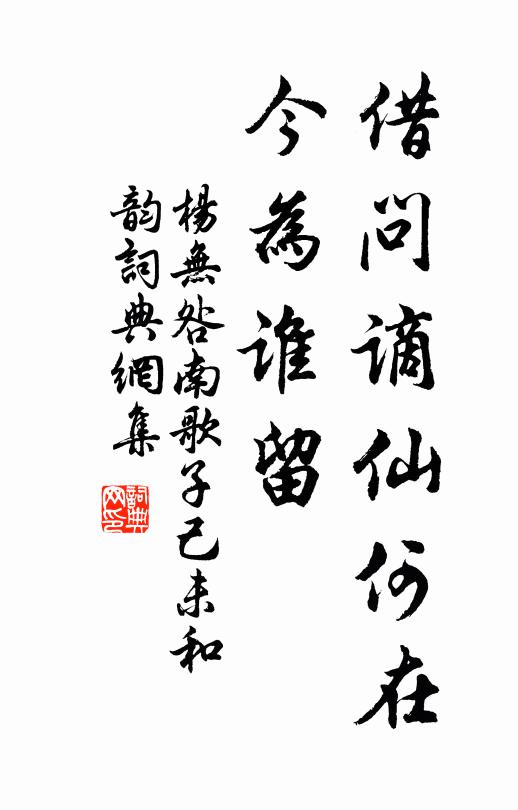 借問謫仙何在
今為誰留
楊無咎南歌子己未和
韵詞典網集
詞典
网印